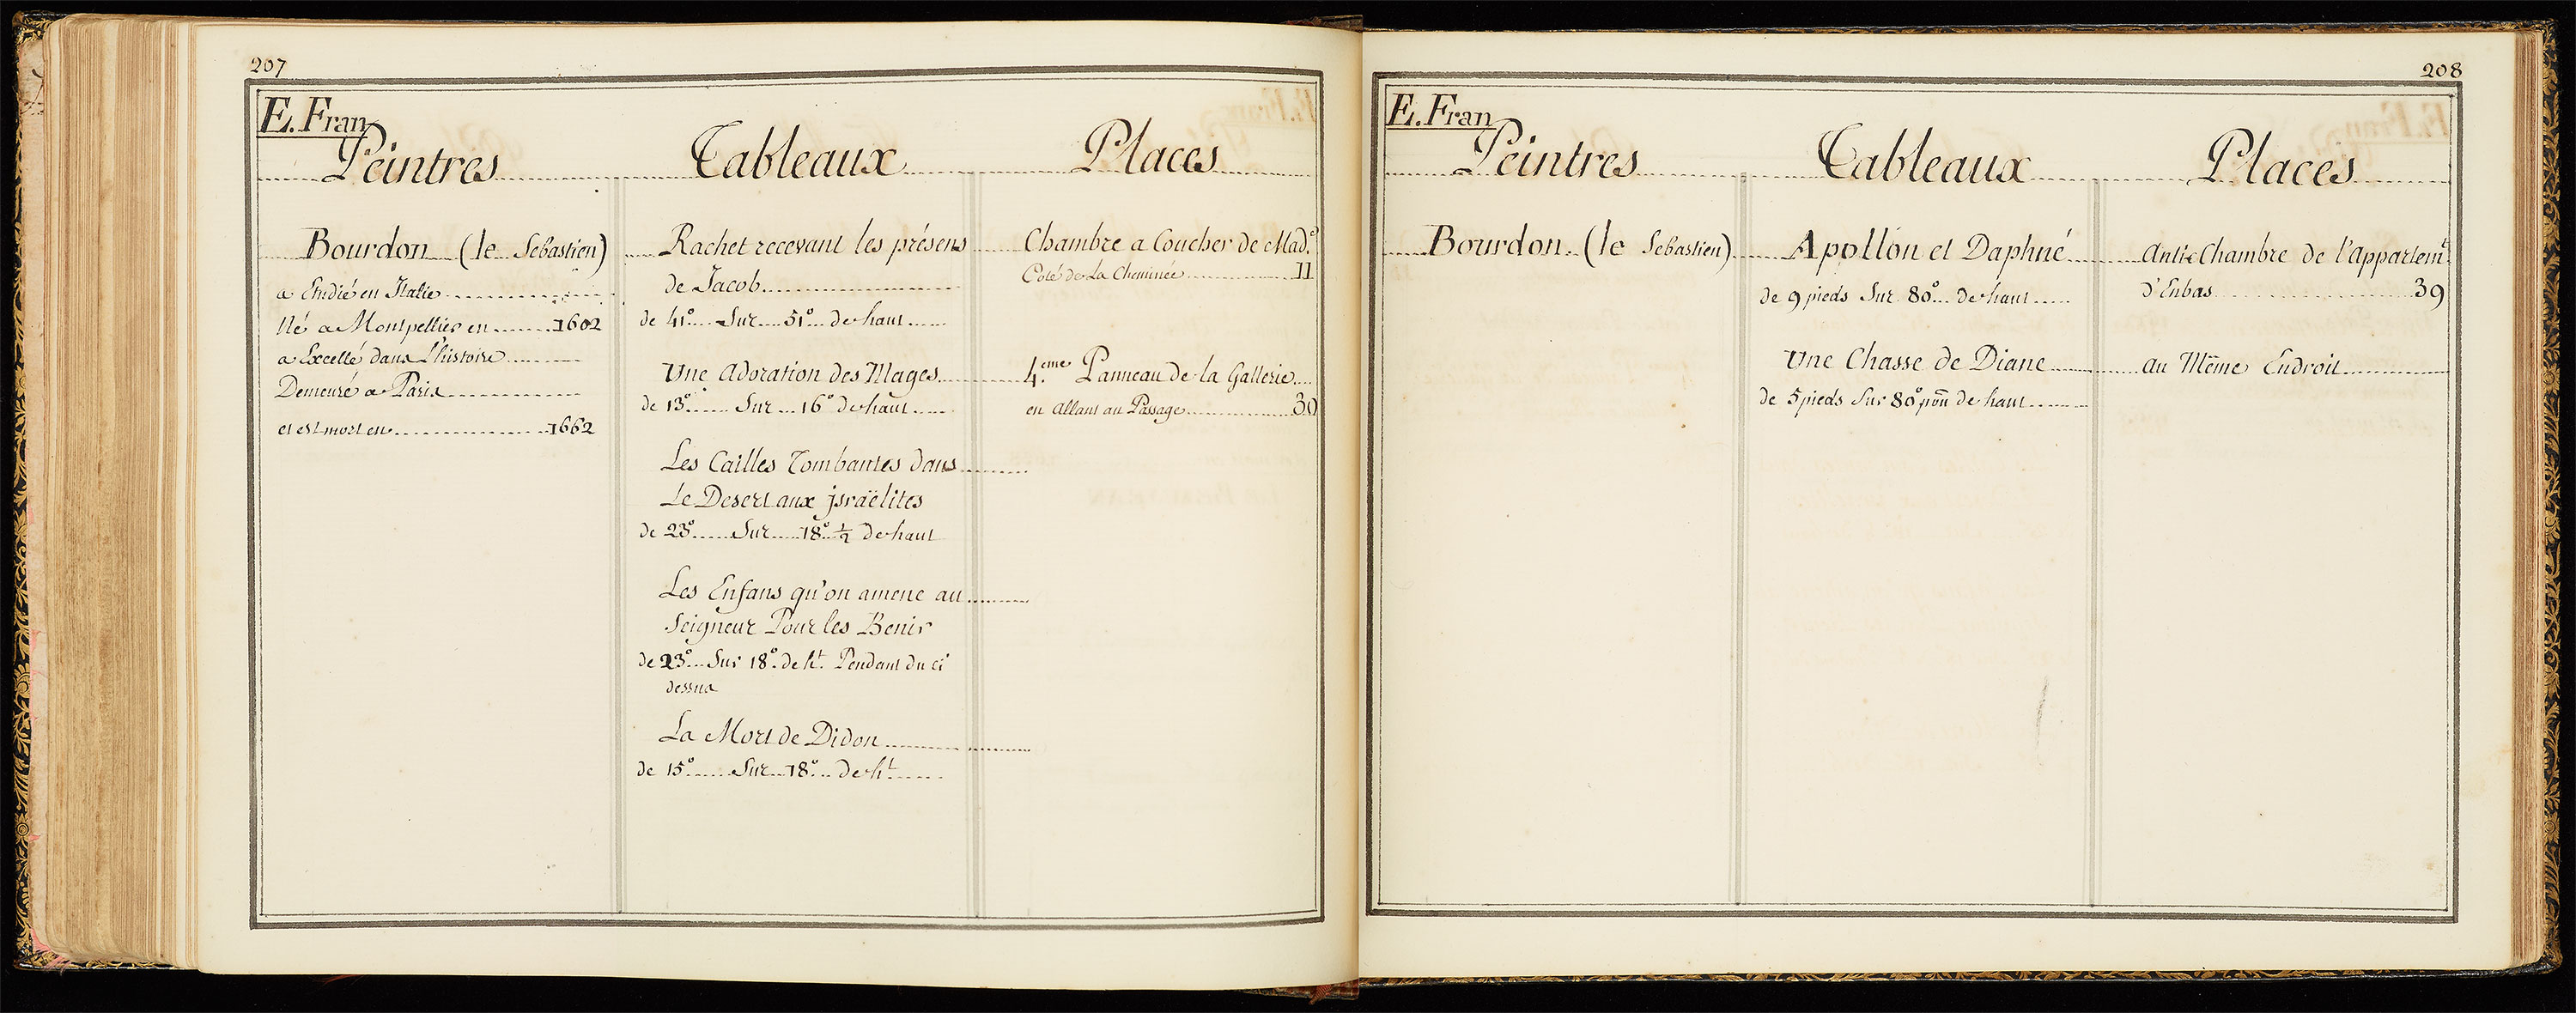 207
E. Fran
Peintres Tableaux Places
Bourdon (le Sebastien)
a Etudié en Italie
Né a Montpellier en 1602
a Excellé dans l'histoire
Demeuré a Paris
et est mort en 1662
Rachel recevant les présens
de Jacob
de 41° Sur 51° de haut
Une Adoration des Mages
de 13° Sur 16° de haut
Les Cailles Tombantes dans
Le Desert aux jsraëlites
de 23° Sur 18° ½ de haut
Les Enfans qu'on amene au
Seigneur Pour les Benir
de 23° Sur 18° de ht. Pendant du ci
dessus
La Mort de Didon
de 15° Sur 18° de ht.
Chambre a Coucher de Mad.e
Coté de La Cheminée 11
4.eme Panneau de la Gallerie
en allant au Passage 30
208
E. Fran
Peintres Tableaux Places
Bourdon. (le Sebastien)
Apollon et Daphné
de 9 pieds Sur 80° de haut
Une Chasse de Diane
de 5 pieds Sur 80° de haut
Anti-Chambre de l'appartemt
d'Enbas 39
au Même Endroit